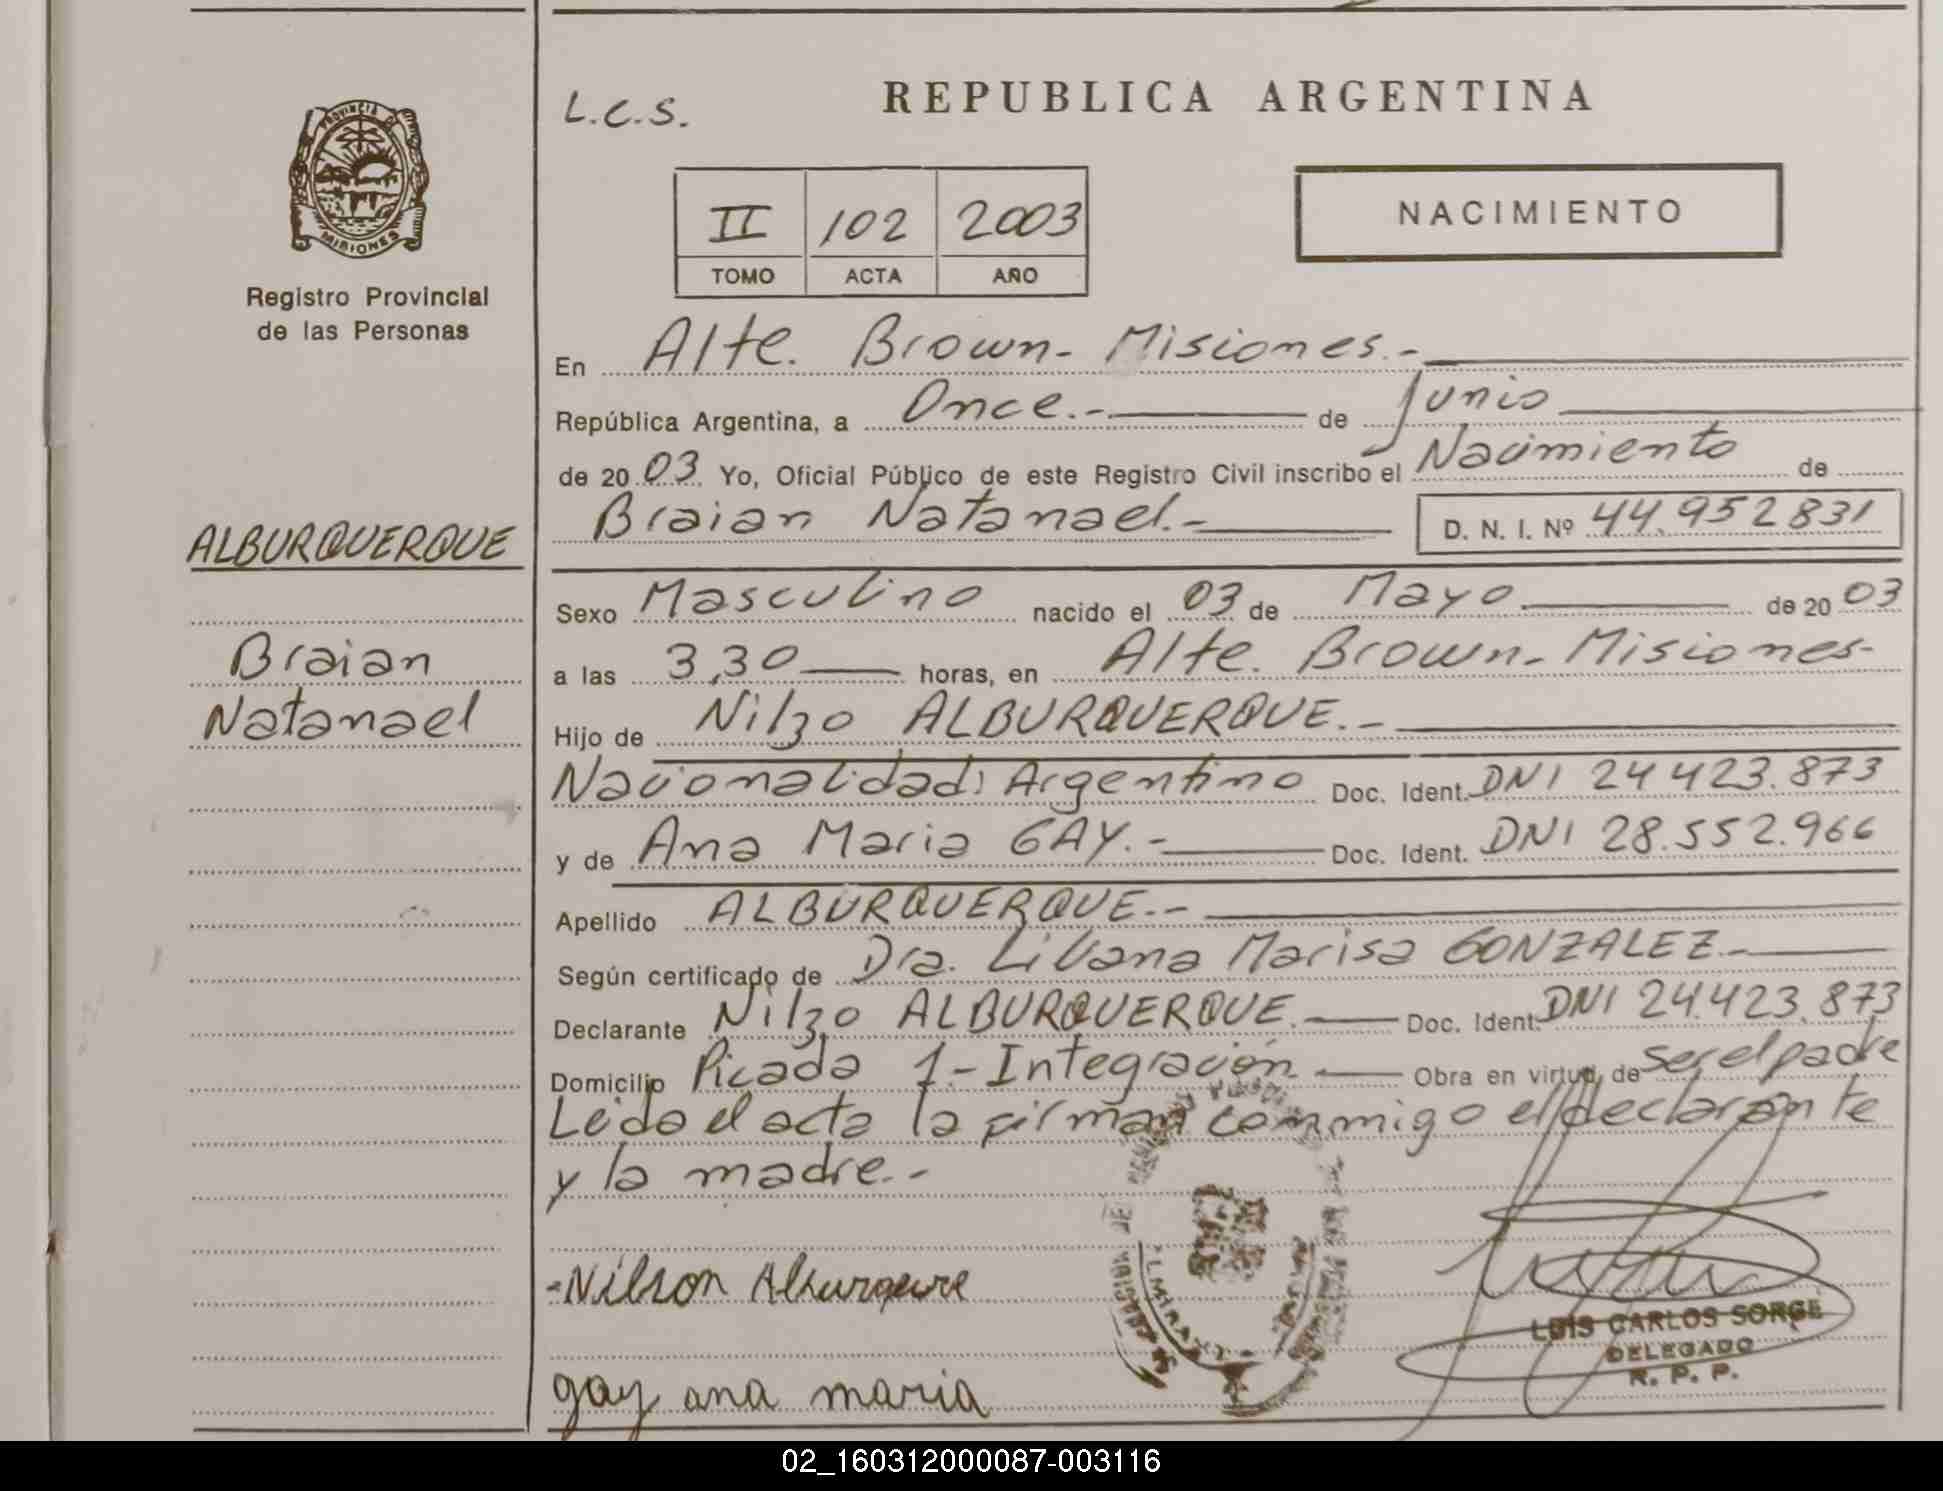 REPUBLICA ARGENTINA
L.C.S.
PROVINCIA DE
MISIONES
Registro Provincial
de las Personas
II 102 2003
TOMO ACTA AÑO
NACIMIENTO
En Alte. Brown - Misiones.-
República Argentina, a Once.- de Junio
de 20 03. Yo, Oficial Público de este Registro Civil inscribo el Nacimiento de
Braian Natanael.- D. N. I. Nº 44.952831
ALBURQUERQUE
Braian
Natanael
Sexo Masculino nacido el 03 de Mayo de 20 03
a las 3,30 horas, en Alte. Brown - Misiones-
Hijo de Nilzo ALBURQUERQUE.-
Nacionalidad: Argentino Doc. Ident. DNI 24 423.873
y de Ana Maria GAY.- Doc. Ident. DNI 28.552.966
Apellido ALBURQUERQUE.-
Según certificado de Dra. Liliana Marisa GONZALEZ.-
Declarante Nilzo ALBURQUERQUE. Doc. Ident. DNI 24.423.873
Domicilio Picada 1 - Integración Obra en virtud de ser el padre
Leida el acta la firman conmigo el declarante
y la madre.-
-Nilson Alburqeure
gay ana maria
LUIS CARLOS SORGE
DELEGADO
R. P. P.
02_160312000087-003116